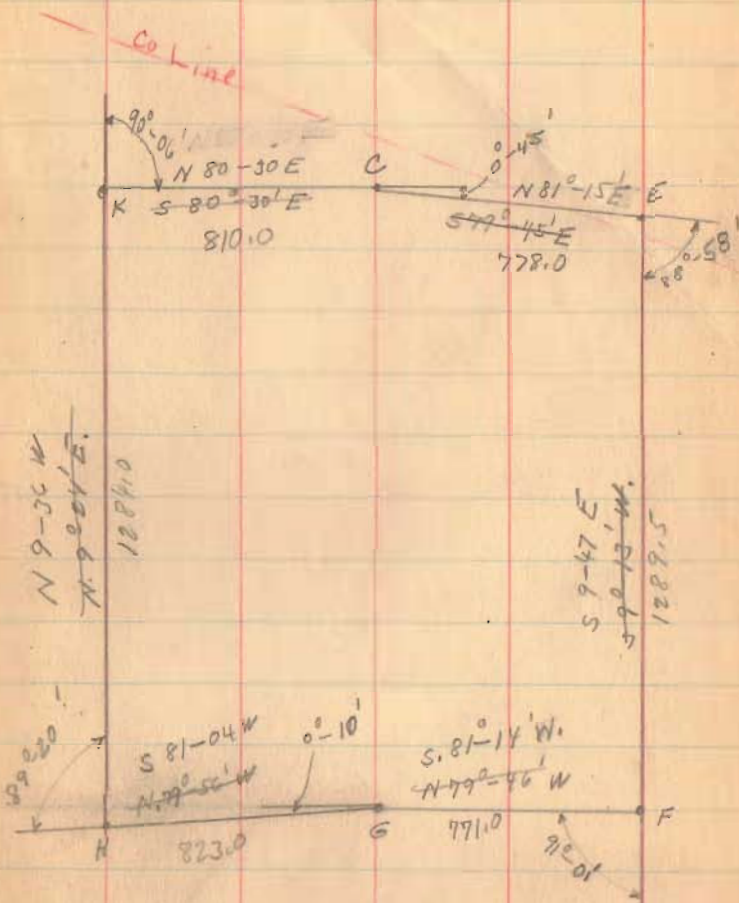 Co Line
90°-06'
N 80-30 E
S 80°-30' E
810.0
K
C
0°-45'
N 81°-15' E
S 79°-45' E
778.0
E
88°-58'
N 9-36 W
N. 9°04' E.
1284.0
S 9-47 E
S 9°-13' W.
1289.5
89°20'
S 81-04 W
N. 79°-56' W
823.0
H
0°-10'
G
S. 81°-14' W.
N 79°-46' W
771.0
91°-01'
F